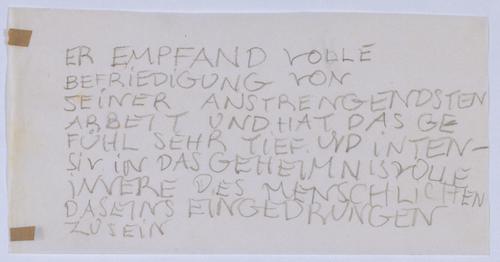 ER EMPFAND VOLLE
BEFRIEDIGUNG VON
SEINER ANSTRENGENDSTEN
ARBEIT UND HAT DAS GE
FÜHL SEHR TIEF UND INTEN-
SIV IN DAS GEHEIMNISVOLLE
INNERE DES MENSCHLICHEN
DASEINS EINGEDRUNGEN
ZU SEIN